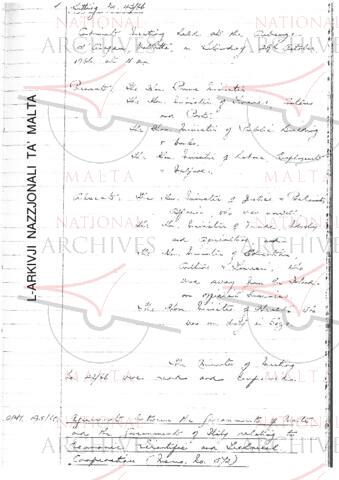 Sitting No. 42/66
Cabinet Meeting held at the Auberge
d'Aragon, Valletta, on Saturday, 29th October
1966 at 11 am.
Present: The Hon. Prime Minister
The Hon. Minister of Finance, Customs
and Port.
The Hon. Minister of Public Building
& Works.
The Hon. Minister of Labour, Employment
& Welfare.
Absent: The Hon. Minister of Justice & Parliamentary
Affairs who was
The Hon. Minister of Trade, Industry
and Agriculture and
The Hon. Minister of Education,
Culture & Tourism who
were away from the Island
on official business.
The Hon. Minister of Health who
was on duty in
The Minutes of Meeting
No 42/66 were read and confirmed.
Agreement between the Government of Malta
and the Government of Italy relating to
Economic Scientific and Technical
Cooperation (Memo. No.
L-ARKIVJI NAZZJONALI TA' MALTA
NATIONAL
ARCHIVES
MALTA